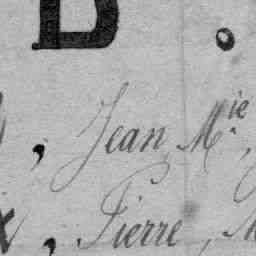 B.
, Jean M.ie,
x, Pierre, M